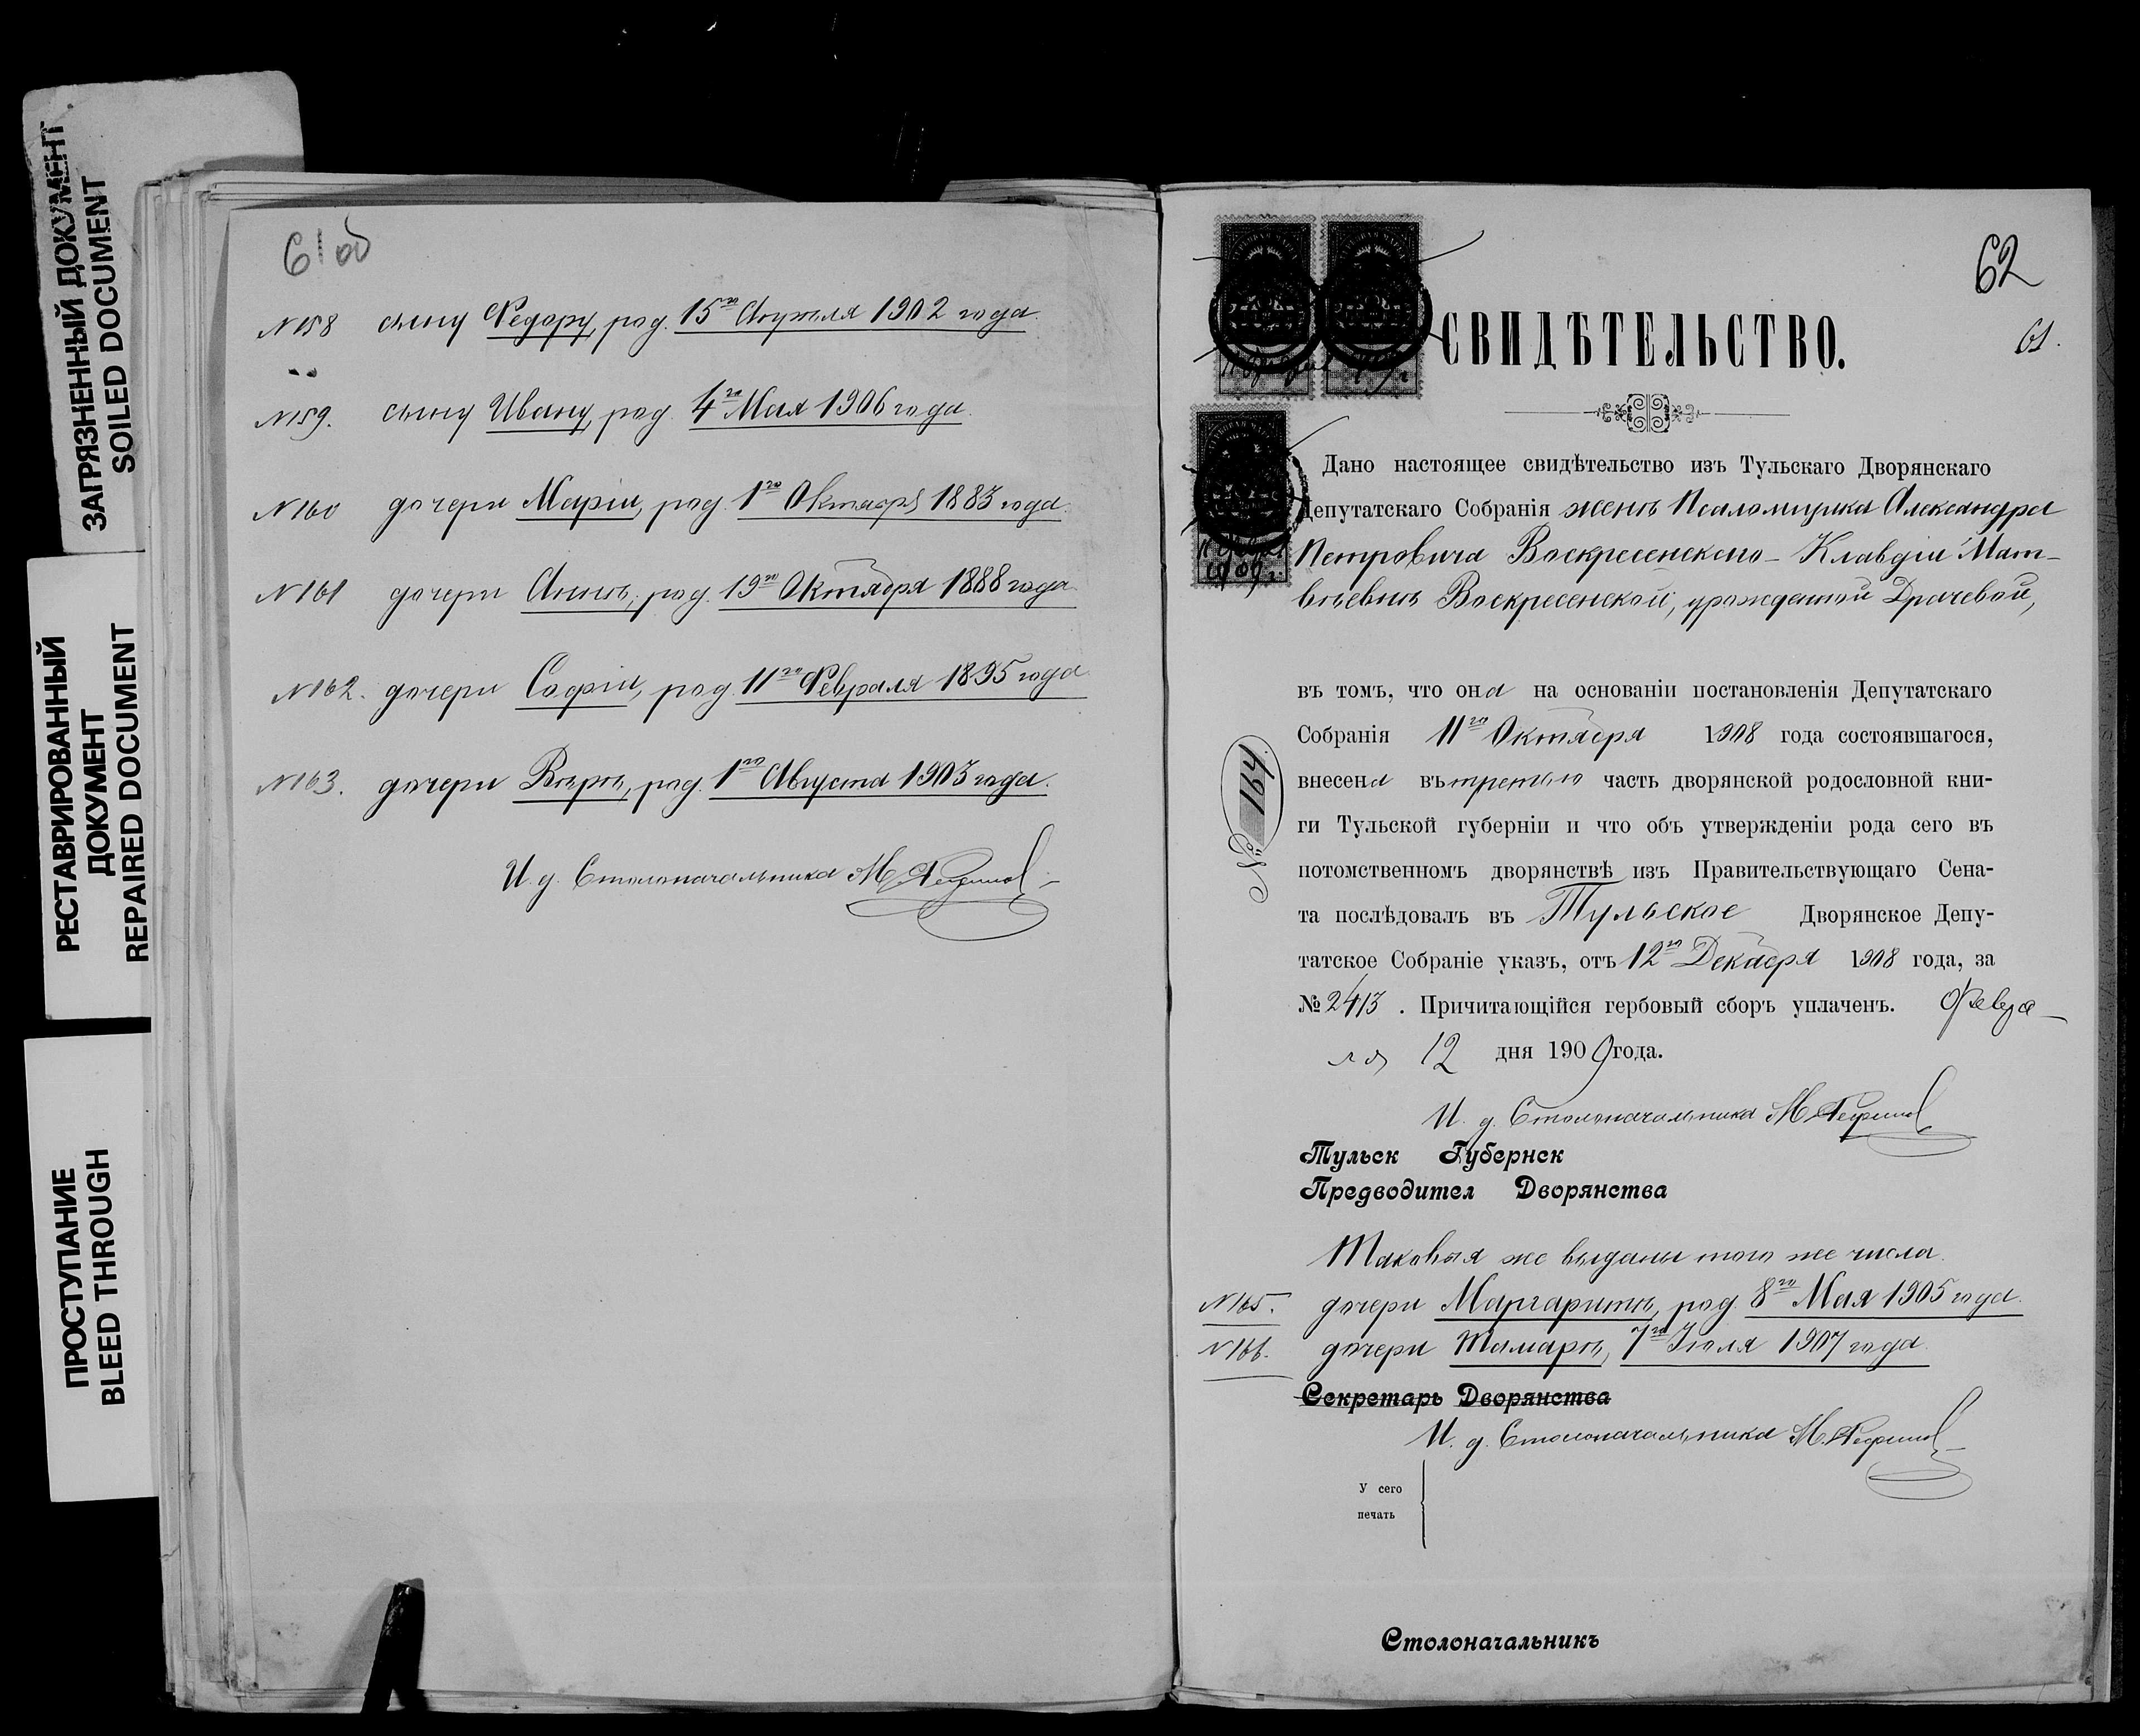 ЗАГРЯЗНЕННЫЙ ДОКУМЕНТ
SOILED DOCUMENT
РЕСТАВРИРОВАННЫЙ
ДОКУМЕНТ
REPAIRED DOCUMENT
ПРОСТУПАНИЕ
BLEED THROUGH
61 об
N 158 сыну Ѳедору, род. 15го Апрѣля 1902 года.
N 159. сыну Ивану, род. 4го Мая 1906 года.
N 160 дочери Маріи, род. 1го Октября 1883 года.
N 161 дочери Аннѣ, род. 19го Октября 1888 года
N 162. дочери Софіи, род. 11го Февраля 1895 года
N 163. дочери Вѣрѣ, род. 1го Августа 1903 года.
И. д. Столоначальника М.
62
61.
СВИДѢТЕЛЬСТВО.
Дано настоящее свидѣтельство изъ Тульскаго Дворянскаго
Депутатскаго Собранія женѣ Псаломщика Александра
Петровича Воскресенскаго - Клавдіи Мат-
вѣевнѣ Воскресенской, урожденной Драчевой,
въ томъ, что она на основаніи постановленія Депутатскаго
Собранія 11го Октября 1908 года состоявшагося,
внесена въ третью часть дворянской родословной кни-
ги Тульской губерніи и что объ утвержденіи рода сего въ
потомственномъ дворянствѣ изъ Правительствующаго Сена-
та послѣдовалъ въ Тульское Дворянское Депу-
татское Собраніе указъ, отъ 12го Декабря 1908 года, за
№ 2413. Причитающійся гербовый сборъ уплаченъ. Февра-
ля 12 дня 1909 года.
№ 164.
И. д. Столоначальника М.
Тульск Губернск
Предводител Дворянства
Таковыя же выданы того же числа.
N 165. дочери Маргаритѣ, род. 8го Мая 1905 года.
N 166. дочери Тамарѣ, 7го Іюля 1907 года.
Секретарь Дворянства
И. д. Столоначальника М.
У сего
печать
Столоначальникъ